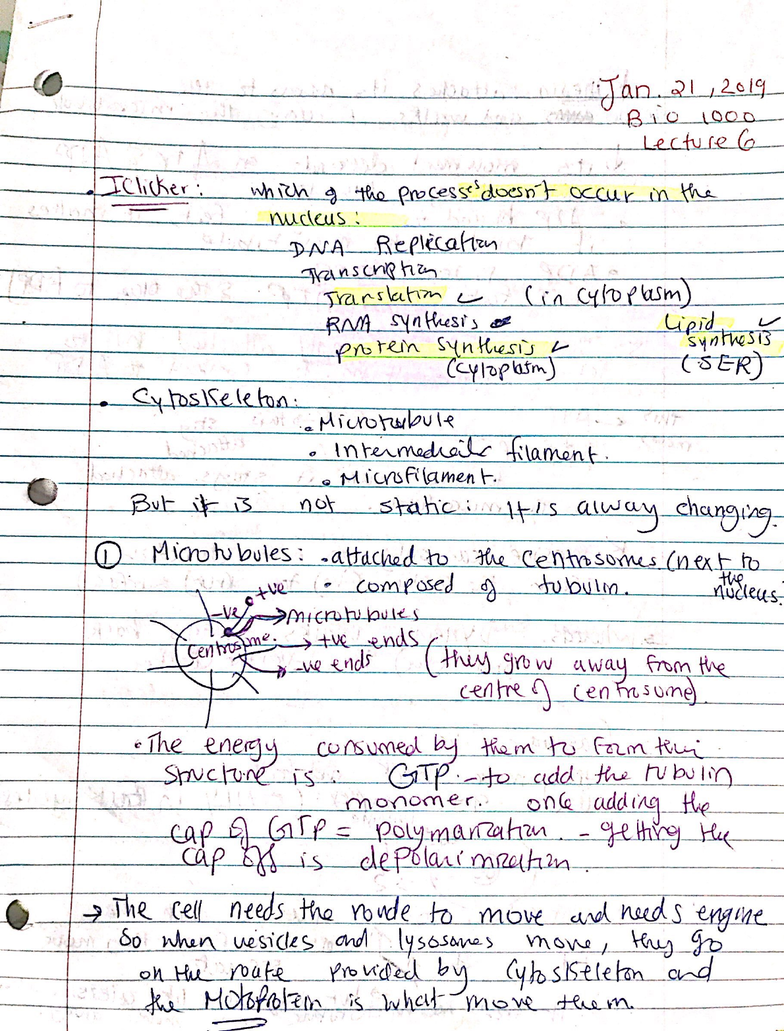 Jan. 21, 2019
Bio 1000
Lecture 6
• IClicker: which of the processes doesn't occur in the
nucleus:
DNA Replication
Transcription
Translation ✓ (in cytoplasm)
RNA synthesis
Lipid ✓
synthesis
(SER)
protein synthesis ✓
(cytoplasm)
• Cytoskeleton:
• Microtubule
• Intermediate filament.
• Microfilament.
But it is not static: It is alway changing.
① Microtubules: • attached to the centrosomes (next to
the
nucleus
• composed of tubulin.
+ve
-ve
→ microtubules
Centrosome.
→ +ve ends
→ -ve ends
(they grow away from the
centre of centrosome).
• The energy consumed by them to form their
structure is: GTP - to add the tubulin
monomer. once adding the
cap of GTP = polymarization. - getting the
cap off is depolarimization.
→ The cell needs the route to move and needs engine
So when vesicles and lysosomes move, they go
on the route provided by cytoskeleton and
the Motoprotein is what move them.